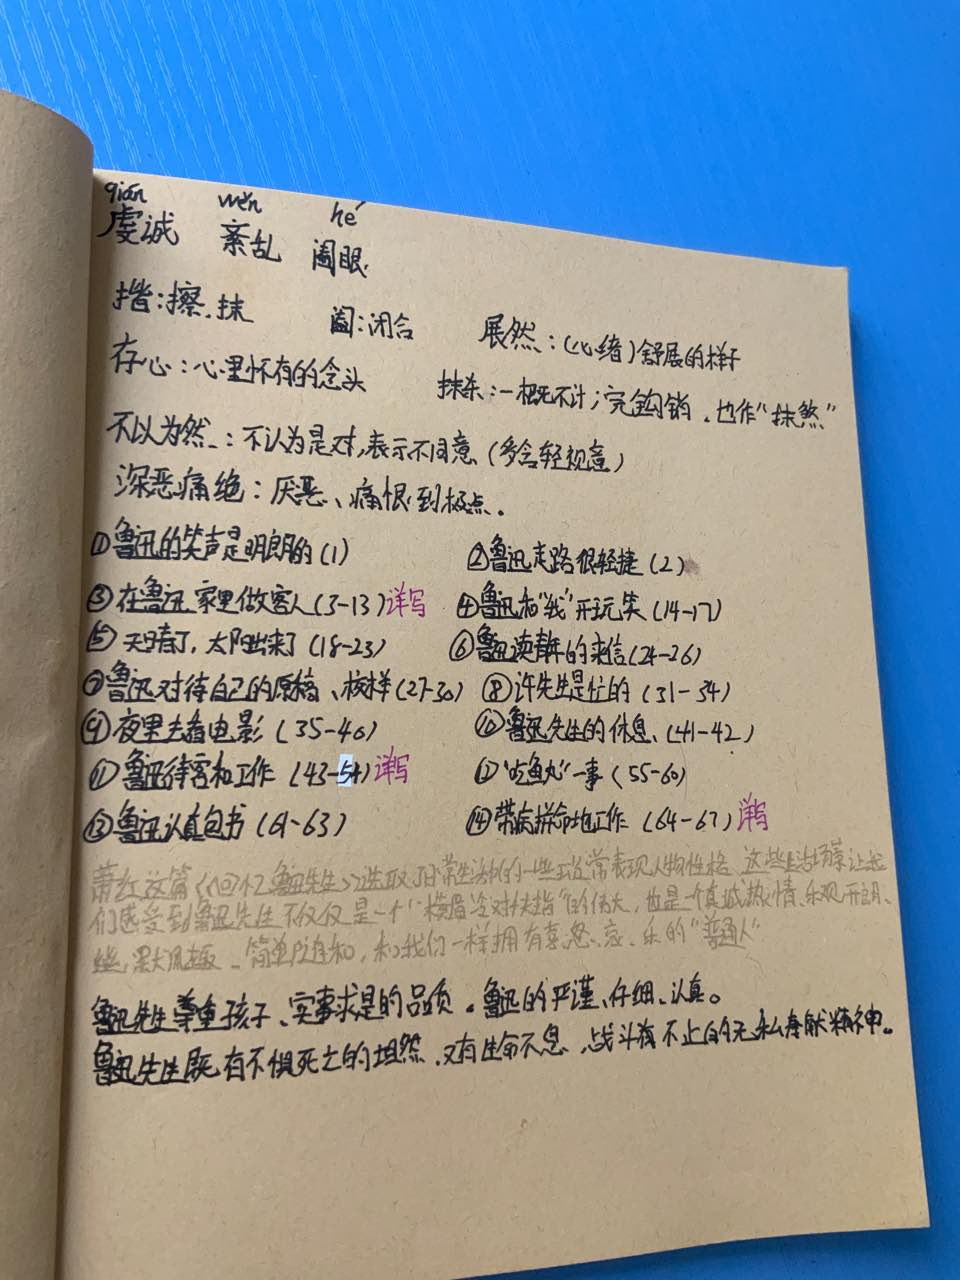 qián wěn hé
虔诚 紊乱 阖眼
揩:擦、抹 阖:闭合 展然:(心绪)舒展的样子
存心:心里怀有的念头 抹杀:一概不计;完全勾销。也作“抹煞”
不以为然:不认为是对,表示不同意(多含轻视意)
深恶痛绝:厌恶、痛恨到极点。
①鲁迅的笑声是明朗的(1) ②鲁迅走路很轻捷(2)
③在鲁迅家里做客人(3-13)详写 ④鲁迅和“我”开玩笑(14-17)
⑤天晴了,太阳出来了(18-23) ⑥鲁迅读青年的来信(24-26)
⑦鲁迅对待自己的原稿、校样(27-30) ⑧许先生是忙的(31-34)
⑨夜里去看电影(35-40) ⑩鲁迅先生的休息(41-42)
⑪鲁迅待客和工作(43-54)详写 ⑫“吃鱼丸”一事(55-60)
⑬鲁迅认真包书(61-63) ⑭带病拼命地工作(64-67)详写
萧红这篇《回忆鲁迅先生》选取了日常生活中的一些琐常表现人物性格、这些生活场景让我
们感受到鲁迅先生不仅仅是一个“横眉冷对千夫指”的伟大,也是一个真诚热情、乐观开朗、
幽默风趣、简单随和,和我们一样拥有喜、怒、哀、乐的“普通人”
鲁迅先生尊重孩子、实事求是的品质。鲁迅的严谨、仔细、认真。
鲁迅先生既有不惧死亡的坦然,又有生命不息,战斗不止的无私奉献精神。